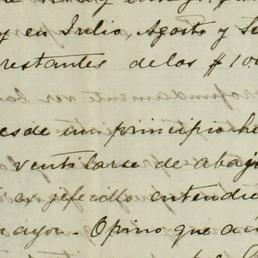 y en Julio, Agosto y Se
restantes de los $100
esde un principio he
ventilarse de abajo
es jefecillo entendie
ayor. Opino que aú